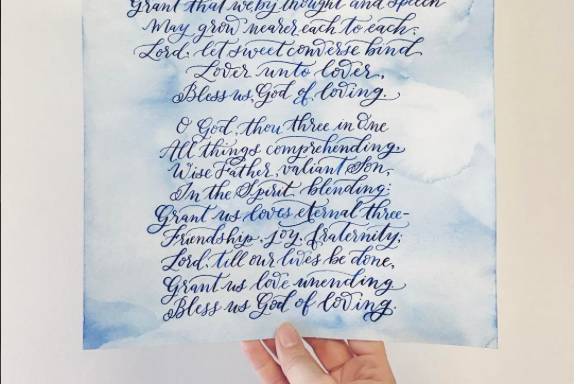 Grant that we by thought and speech
May grow nearer each to each;
Lord, let sweet converse bind
Lover unto lover,
Bless us, God of loving.
O God, thou three in One
All things comprehending,
Wise Father, valiant Son,
In the Spirit blending:
Grant us loves eternal three—
Friendship, joy, fraternity;
Lord, till our lives be done,
Grant us love unending
Bless us God of loving.